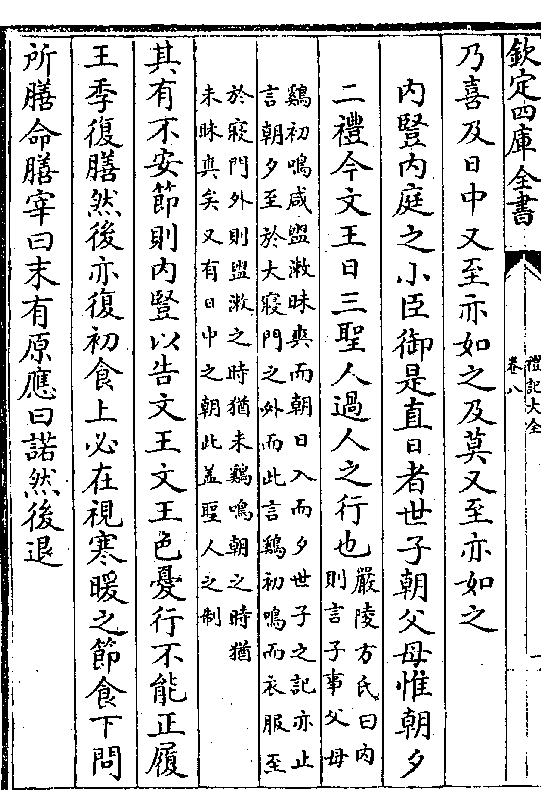 欽定四庫全書
禮記大全
卷八
乃喜及日中又至亦如之及莫又至亦如之
内豎内庭之小臣御是直日者世子朝父母惟朝夕
二禮今文王日三聖人過人之行也
嚴陵方氏曰内
則言子事父母
鷄初鳴咸盥漱昧爽而朝日入而夕世子之記亦止
言朝夕至於大寢門之外而此言鷄初鳴而衣服至
於寢門外則盥漱之時猶未鷄鳴朝之時猶
未昧爽矣又有日中之朝此盖聖人之制
其有不安節則内豎以告文王文王色憂行不能正履
王季復膳然後亦復初食上必在視寒暖之節食下問
所膳命膳宰曰末有原應曰諾然後退